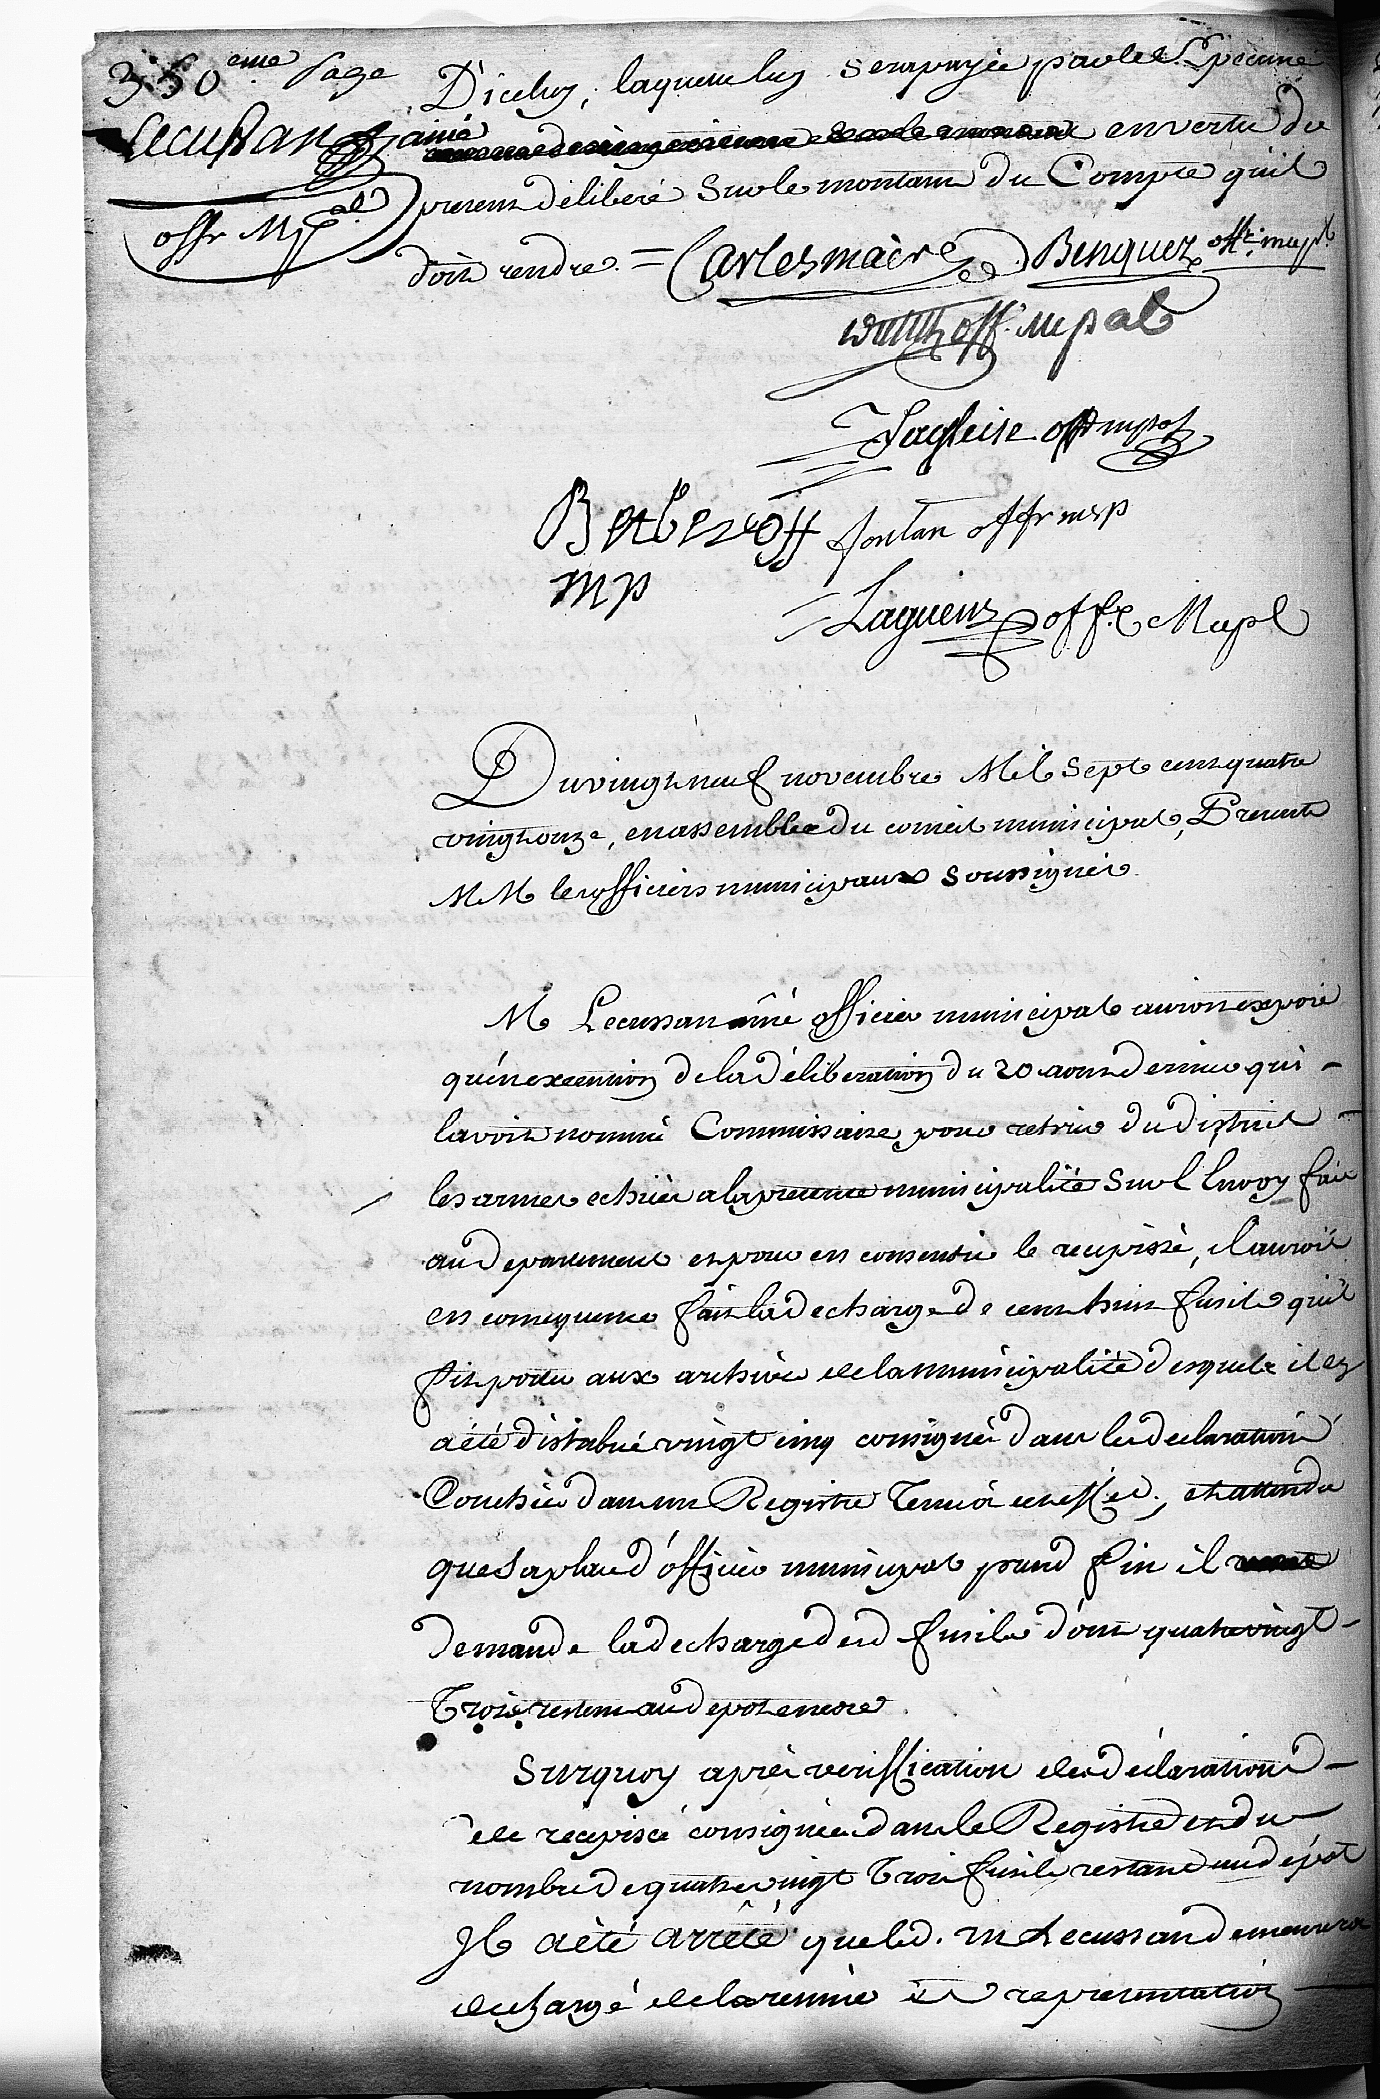 350eme page
D'iceluy, laquelle luy sera payée par led. Lpecune
Lecussan ainé
en vertu du
present délibéré Sur le montant du Compte quil
offr Mpal
doit rendre = Carles maire Benquez offr. mupl
off. mpal
Lagleise off mpal
Barbe off fontan offr mp
mp
Laguens offr Mupl
Du vingt neuf novembre Mil Sept cent quatre
vingt onze, en assemblée du conseil municipal, Presents
MM les officiers municipaux Soussignés.
M Lecussan ainé officier municipal auroit exposé
qu'en execution de la déliberation du 20 aoust dernier qui
lavoit nommé Commissaire pour retirer du district
les armes echües a la presente municipalité Sur l'Envoy fait
au departement et pour en consentir le recepissé, il auroit
en consequence fait la decharge de cent huit fusils qu'il
fit porter aux archives de la Municipalité desquels il en
a été distribué vingt cinq consignés dans les declarations
Couchées dans un Registre Tenu à cet effet, et attendu
que Sa place d'officier municipal prend fin il
demande la decharge desd fusils d'ont quatre vingt
Trois restent au depot encore.
Surquoy après veriffication des déclarations
de recepissé consignées dans le Registre et du
nombre de quatre vingt Trois fusils restant au dépot
Il a été arrêté que led. m Lecussan demeurera
dechargé de la remise et representation